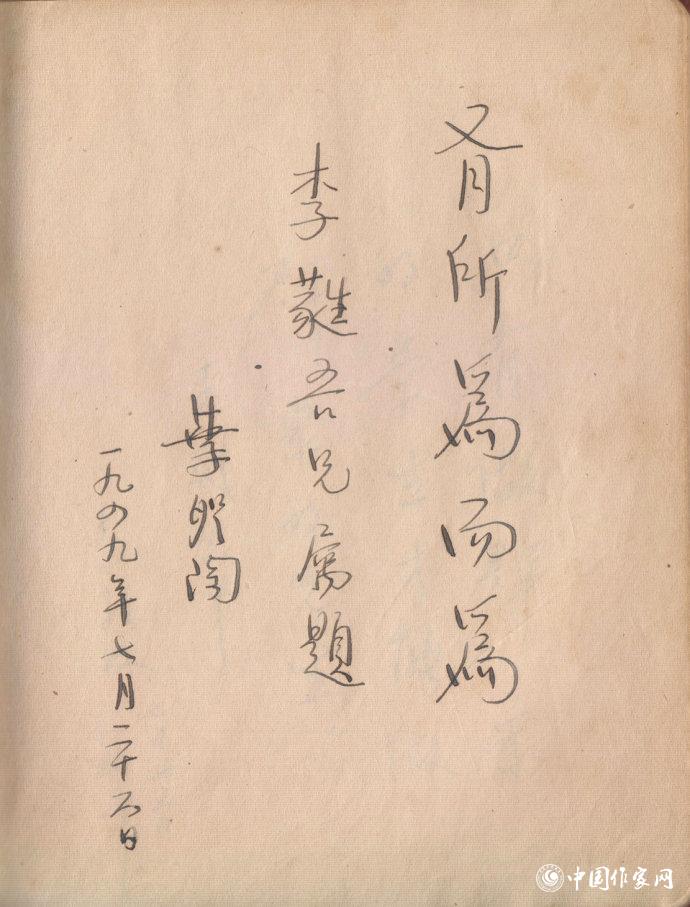 有所為而為
李蕤吾兄屬題
葉聖陶
一九四九年七月二十六日
中国作家网